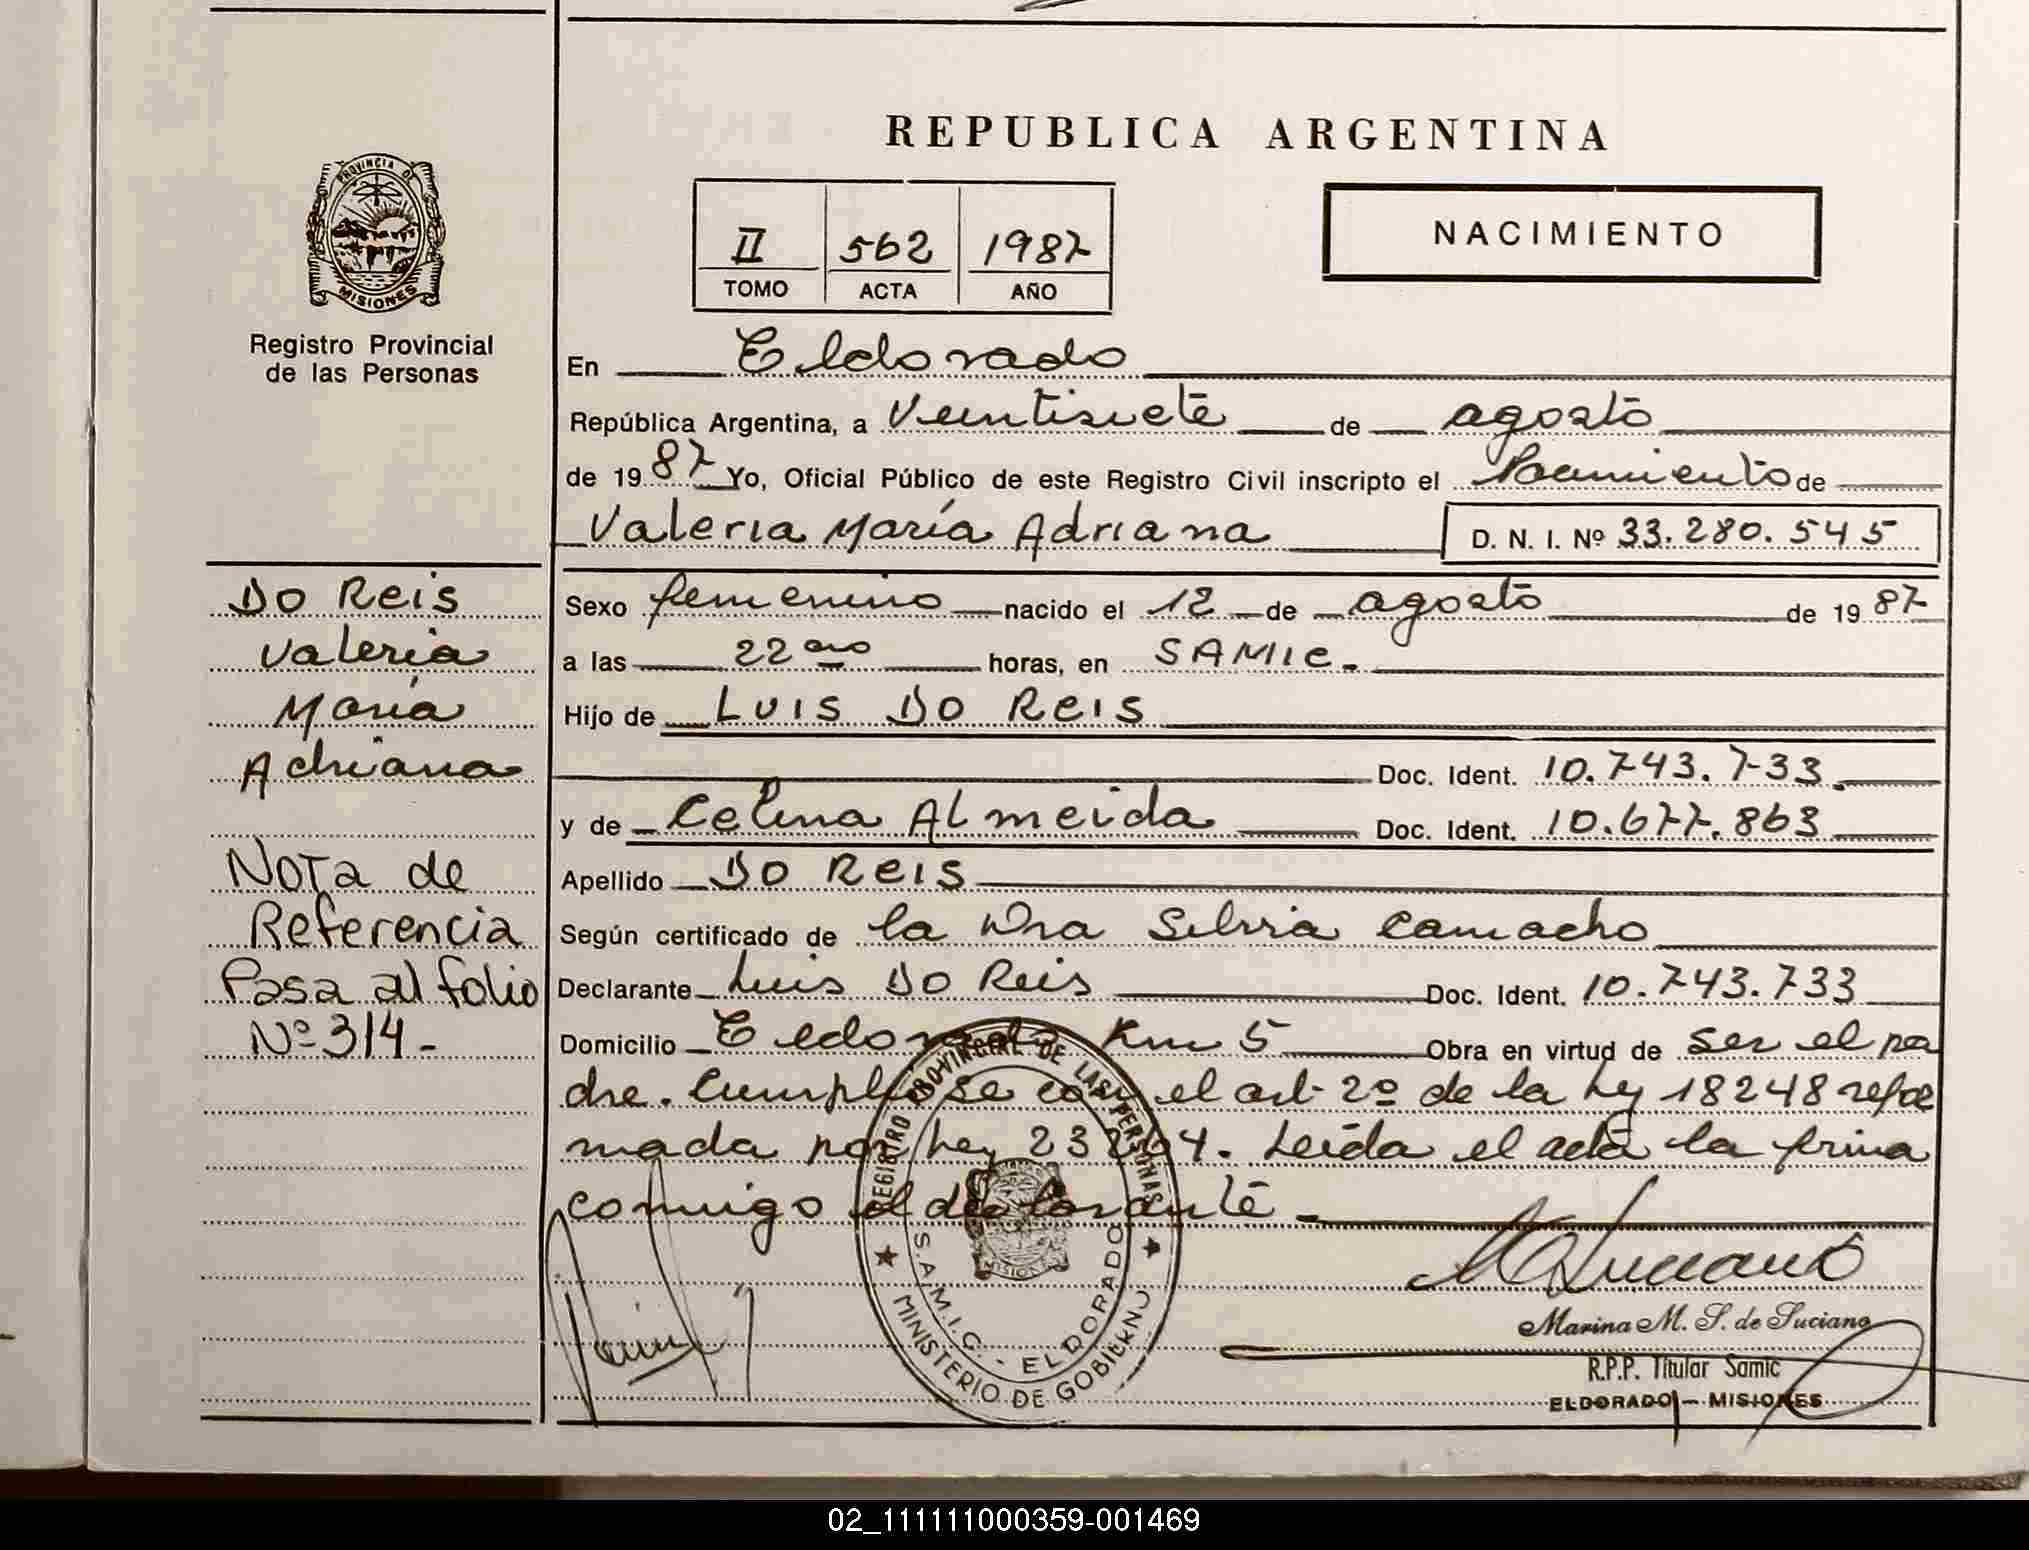 REPUBLICA ARGENTINA
PROVINCIA DE
MISIONES
Registro Provincial
de las Personas
II 562 1987
TOMO ACTA AÑO
NACIMIENTO
En Eldorado
República Argentina, a Veintisiete de agosto
de 1987 Yo, Oficial Público de este Registro Civil inscripto el Nacimiento de
Valeria María Adriana D. N. I. Nº 33.280.545
Sexo femenino nacido el 12 de agosto de 1987
a las 22 horas, en SAMIC.
Hijo de LUIS DO REIS
Doc. Ident. 10.743.733
y de Celina Almeida Doc. Ident. 10.677.863
Apellido DO REIS
Según certificado de la Dra Silvia Camacho
Declarante Luis Do Reis Doc. Ident. 10.743.733
Domicilio Eldorado Km 5 Obra en virtud de ser el pa
dre. Cumplióse con el art. 2º de la Ley 18248 refor
mada por Ley 23264. Leída el acta la firma
conmigo el declarante
DO REIS
Valeria
María
Adriana
NOTA de
Referencia
Pasa al folio
Nº 314-
REGISTRO PROVINCIAL DE LAS PERSONAS
S.A.M.I.C. - ELDORADO
MISIONES
MINISTERIO DE GOBIERNO
Marina M. S. de Suciano
R.P.P. Titular Samic
ELDORADO - MISIONES
02_111111000359-001469